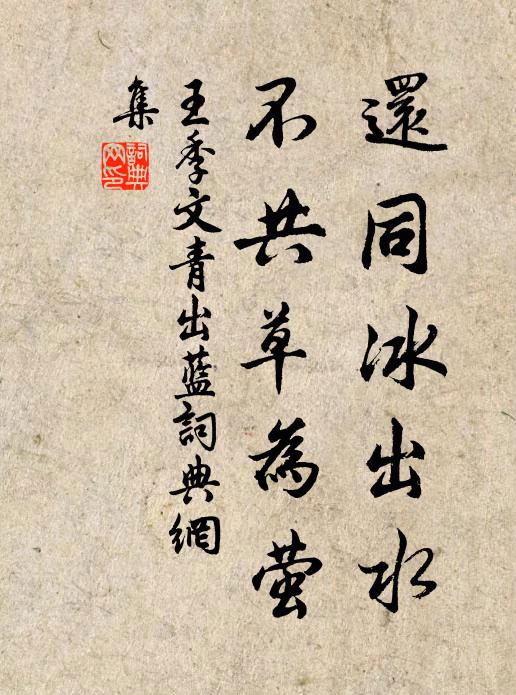 還同冰出水
不共草為萤
王季文青出藍詞典網
集
詞典
网印